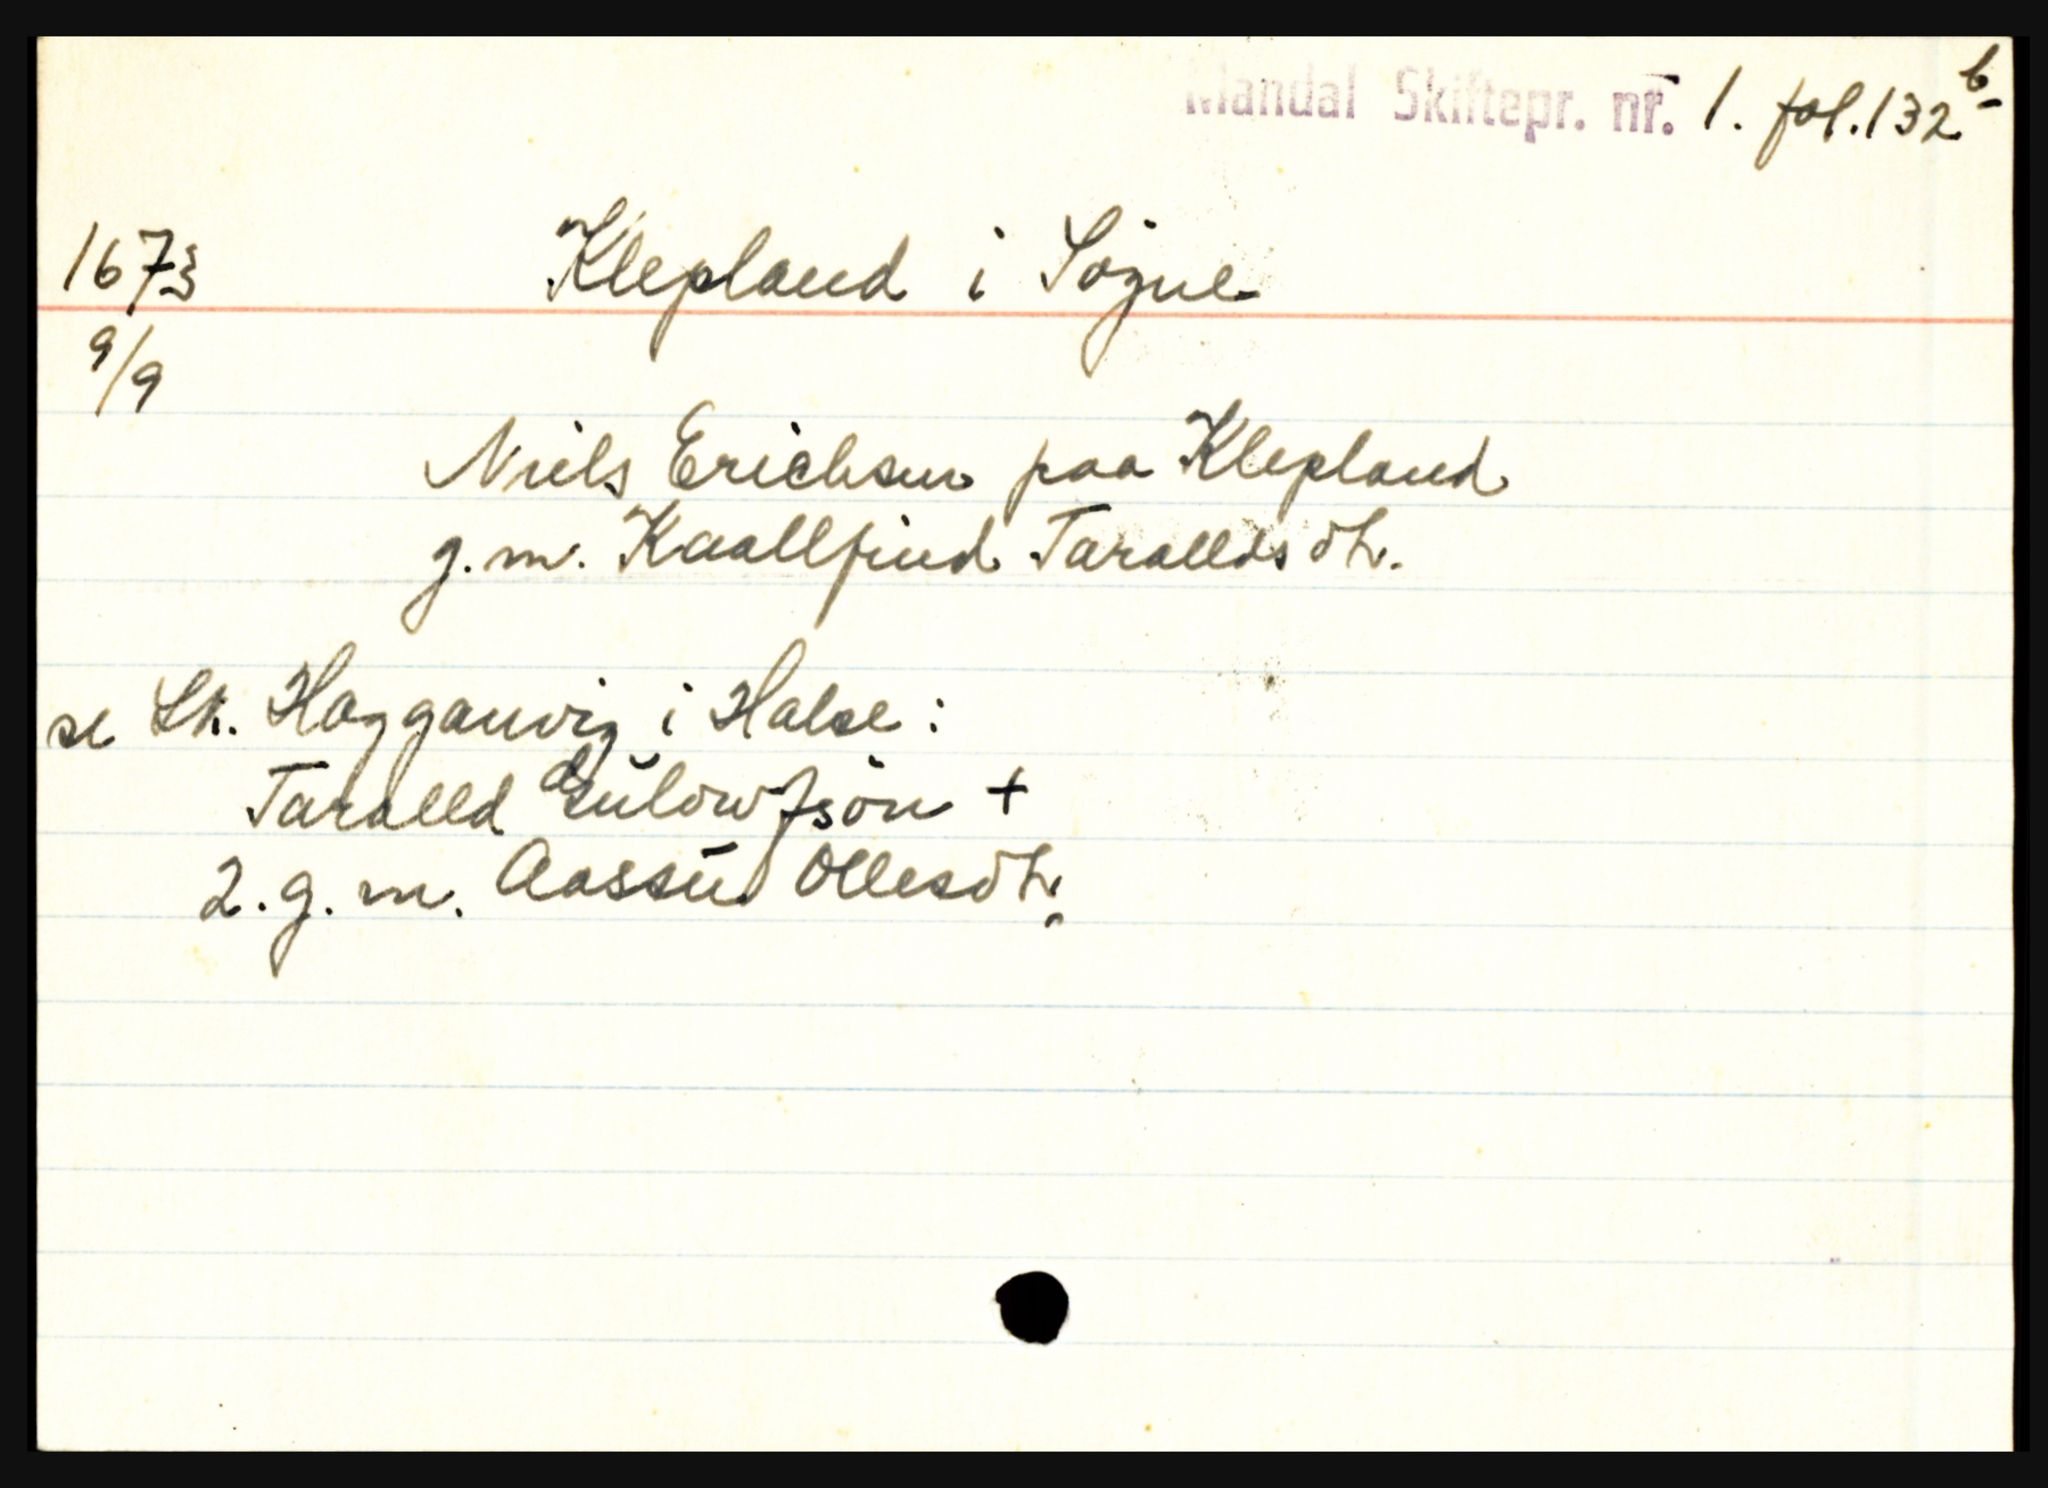 Mandal Skiftepr. nr. 1. fol. 132 b
1673 Klepland i Søgne
9/9
Niels Erichsen paa Klepland
g. m. Kaallfind Taralldsdtr.
se Sk. Hogganvig i Halse:
Taralld Gulowfsön +
2. g. m. Aassu Ollesdtr.